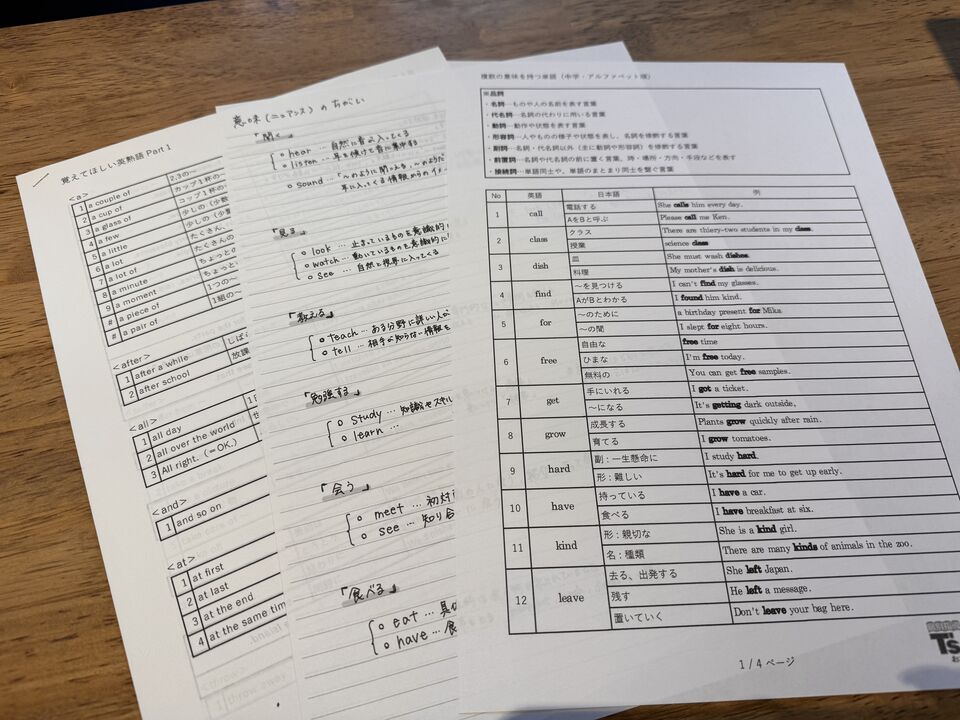 覚えてほしい英熟語 Part 1
<a>
1 a couple of 2,3の~
2 a cup of カップ1杯の~
3 a glass of コップ1杯の
4 a few 少しの(少数
5 a little 少しの(少
6 a lot たくさん、
7 a lot of たくさんの
8 a minute ちょっとの
9 a moment ちょっと
# a piece of 1つの~
# a pair of 1組の~
<after>
1 after a while しば
2 after school 放課
<all>
1 all day
2 all over the world
3 All right. (=OK.)
<and>
1 and so on
<at>
1 at first
2 at last
3 at the end
4 at the same tim
<throw>
1 throw away
意味(ニュアンス)のちがい
「聞く」
hear … 自然に音が入ってくる
listen … 耳を傾けて音に集中する
sound … 「~のように聞こえる、~のように
耳に入ってくる情報からのイメ
「見る」
look … 止まっているものを意識的に
watch … 動いているものを意識的に
see … 自然と視界に入ってくる
「教える」
teach … ある分野に詳しい人が
tell … 相手が知らない情報を
「勉強する」
study … 知識やスキル
learn …
「会う」
meet … 初対
see … 知り合
「食べる」
eat … 具体
have … 食
複数の意味を持つ単語(中学・アルファベット順)
※品詞
・名詞…ものや人の名前を表す言葉
・代名詞…名詞の代わりに用いる言葉
・動詞…動作や状態を表す言葉
・形容詞…人やものの様子や状態を表し、名詞を修飾する言葉
・副詞…名詞・代名詞以外(主に動詞や形容詞)を修飾する言葉
・前置詞…名詞や代名詞の前に置く言葉。時・場所・方向・手段などを表す
・接続詞…単語同士や、単語のまとまり同士を繋ぐ言葉
No 英語 日本語 例
1 call 電話する She calls him every day.
AをBと呼ぶ Please call me Ken.
2 class クラス There are thiery-two students in my class.
授業 science class
3 dish 皿 She must wash dishes.
料理 My mother's dish is delicious.
4 find ~を見つける I can't find my glasses.
AがBとわかる I found him kind.
5 for ~のために a birthday present for Mika.
~の間 I slept for eight hours.
6 free 自由な free time
ひまな I'm free today.
無料の You can get free samples.
7 get 手にいれる I got a ticket.
~になる It's getting dark outside.
8 grow 成長する Plants grow quickly after rain.
育てる I grow tomatoes.
9 hard 副:一生懸命に I study hard.
形:難しい It's hard for me to get up early.
10 have 持っている I have a car.
食べる I have breakfast at six.
11 kind 形:親切な She is a kind girl.
名:種類 There are many kinds of animals in the zoo.
12 leave 去る、出発する She left Japan.
残す He left a message.
置いていく Don't leave your bag here.
1 / 4 ページ
T's